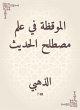 الموقظة في علم
مصطلح الحديث
الذهبي